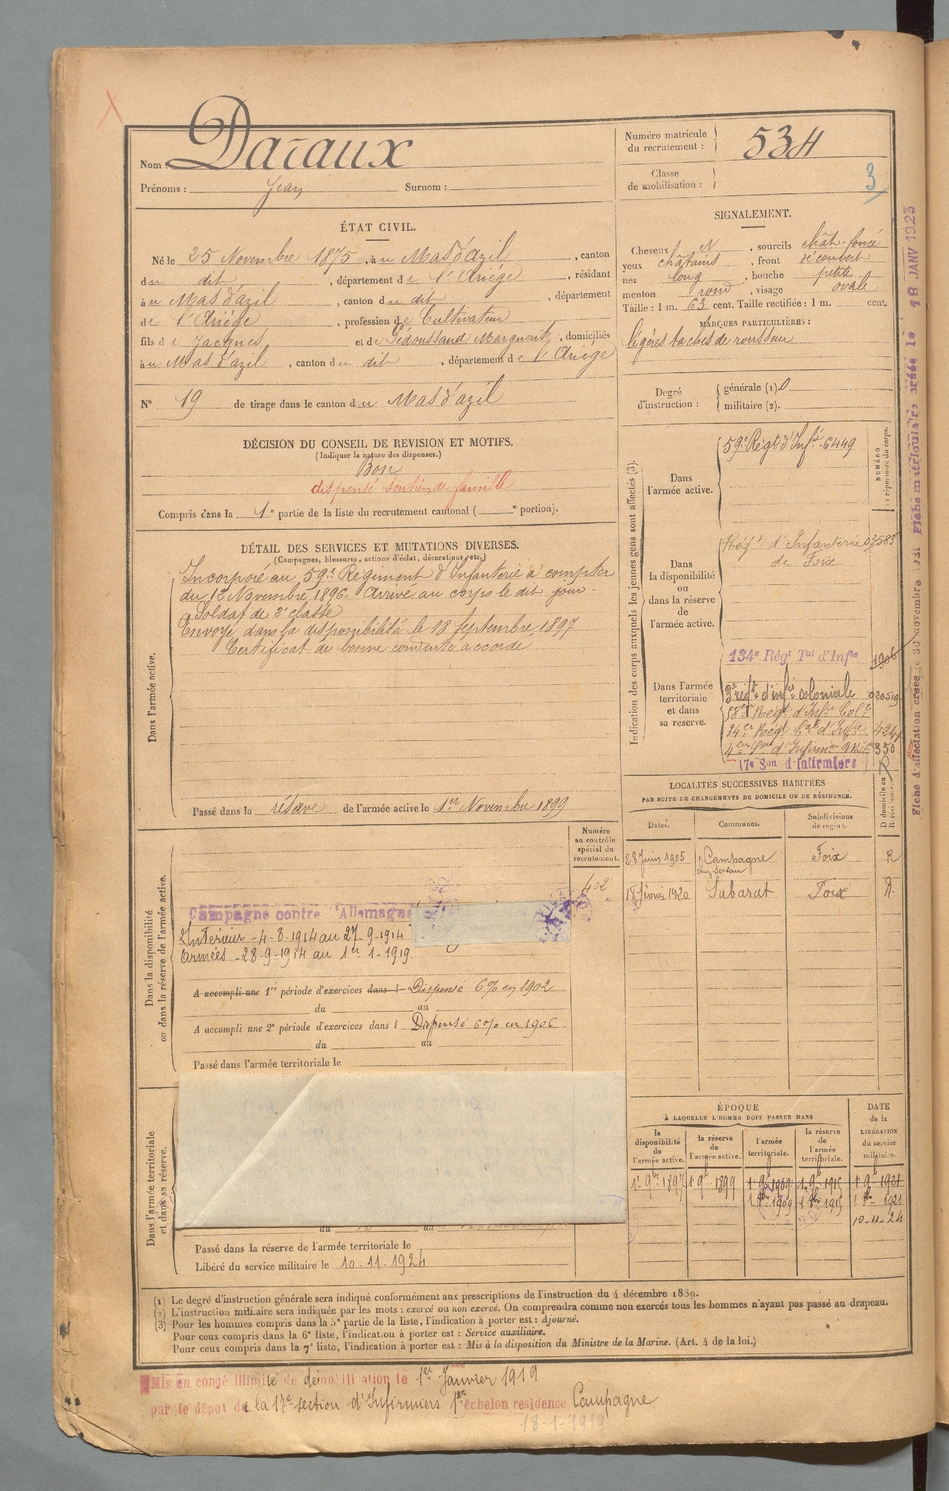 Nom : Daraux
Prénoms : Jean Surnom :
Numéro matricule du recrutement : 534
Classe de mobilisation :
3
ÉTAT CIVIL.
Né le 25 Novembre 1875, à u Mas d'azil, canton
du dit, département de l'Ariége, résidant
à u Mas d'azil, canton du dit, département
de l'Ariége, profession de Cultivateur
fils de Jacques et de Marguerite, domiciliés
à u Mas d'azil, canton du dit, département de l'Ariége
N° 19 de tirage dans le canton du Mas d'azil
DÉCISION DU CONSEIL DE REVISION ET MOTIFS.
(Indiquer la nature des dispenses.)
Bon
dispensé soutien de famille
Compris dans la 1e partie de la liste du recrutement cantonal ( e portion).
DÉTAIL DES SERVICES ET MUTATIONS DIVERSES.
(Campagnes, blessures, actions d'éclat, décorations, etc.)
Dans l'armée active.
Incorporé au 59e Régiment d'Infanterie à compter
du 12 Novembre 1896. Arrivé au corps le dit jour.
Soldat de 2e classe
Envoyé dans la disponibilité le 18 Septembre 1897
Certificat de bonne conduite accordé
Passé dans la réserve de l'armée active le 1er Novembre 1899
Dans la disponibilité
ou dans la réserve de l'armée active.
Numéro
au contrôle
spécial du
recrutement.
402
Campagne contre Allemagne
Intérieur - 4-8-1914 au 27-9-1914
Armées - 28-9-1914 au 1er 1-1919
A accompli une 1re période d'exercices dans l Dispensé 6% en 1902
du au
A accompli une 2e période d'exercices dans l Dispensé 6% en 1906
du au
Passé dans l'armée territoriale le
Dans l'armée territoriale
et dans sa réserve.
Passé dans la réserve de l'armée territoriale le
Libéré du service militaire le 10-11-1924
SIGNALEMENT.
Cheveux N, sourcils chât-foncé
yeux châtains, front découvert
nez long, bouche petite
menton rond, visage ovale
Taille : 1 m. 63 cent. Taille rectifiée : 1 m. cent.
MARQUES PARTICULIÈRES :
légères taches de rousseur
Degré d'instruction :
générale (1).
militaire (2).
Indication des corps auxquels les jeunes gens sont affectés (3).
NUMÉRO
Dans l'armée active.
59e Régt d'Infie 6449
Dans la disponibilité ou dans la réserve de l'armée active.
Régt d'Infanterie 07583
de Foix
Dans l'armée territoriale et dans sa réserve.
134e Régt Tal d'Infie
3e regt d'infie coloniale
58e Regt d'Infie Colle
17e Son d'Infirmiers
LOCALITÉS SUCCESSIVES HABITÉES
PAR SUITE DE CHANGEMENTS DE DOMICILE OU DE RÉSIDENCE.
Dates. Communes. Subdivisions de région. D domicile ou R résidence.
28 Juin 1905 Campagne Foix R
18 février 1920 Sabarat Foix R
ÉPOQUE
À LAQUELLE L'HOMME DOIT PASSER DANS
DATE de la LIBÉRATION du service militaire.
la disponibilité de l'armée active. la réserve de l'armée active. l'armée territoriale. la réserve de l'armée territoriale.
1er 9bre 1897 1er 9bre 1899 1er 9bre 1909 1er 9bre 1915 1er 9bre 1921
1er 9bre 1909 1er 9bre 1915 1er 9bre 1921
10-11-24
(1) Le degré d'instruction générale sera indiqué conformément aux prescriptions de l'instruction du 4 décembre 1889.
(2) L'instruction militaire sera indiquée par les mots : exercé ou non exercé. On comprendra comme non exercés tous les hommes n'ayant pas passé au drapeau.
(3) Pour les hommes compris dans la 5e partie de la liste, l'indication à porter est : Ajourné.
Pour ceux compris dans la 6e liste, l'indication à porter est : Service auxiliaire.
Pour ceux compris dans la 7e liste, l'indication à porter est : Mis à la disposition du Ministre de la Marine. (Art. 4 de la loi.)
Mis en congé illimité de démobilisation le 1er Janvier 1919
par le dépôt de la 17e section d'Infirmiers 1er échelon residence Campagne
Fiche matriculaire créée le 18 JANV 1923